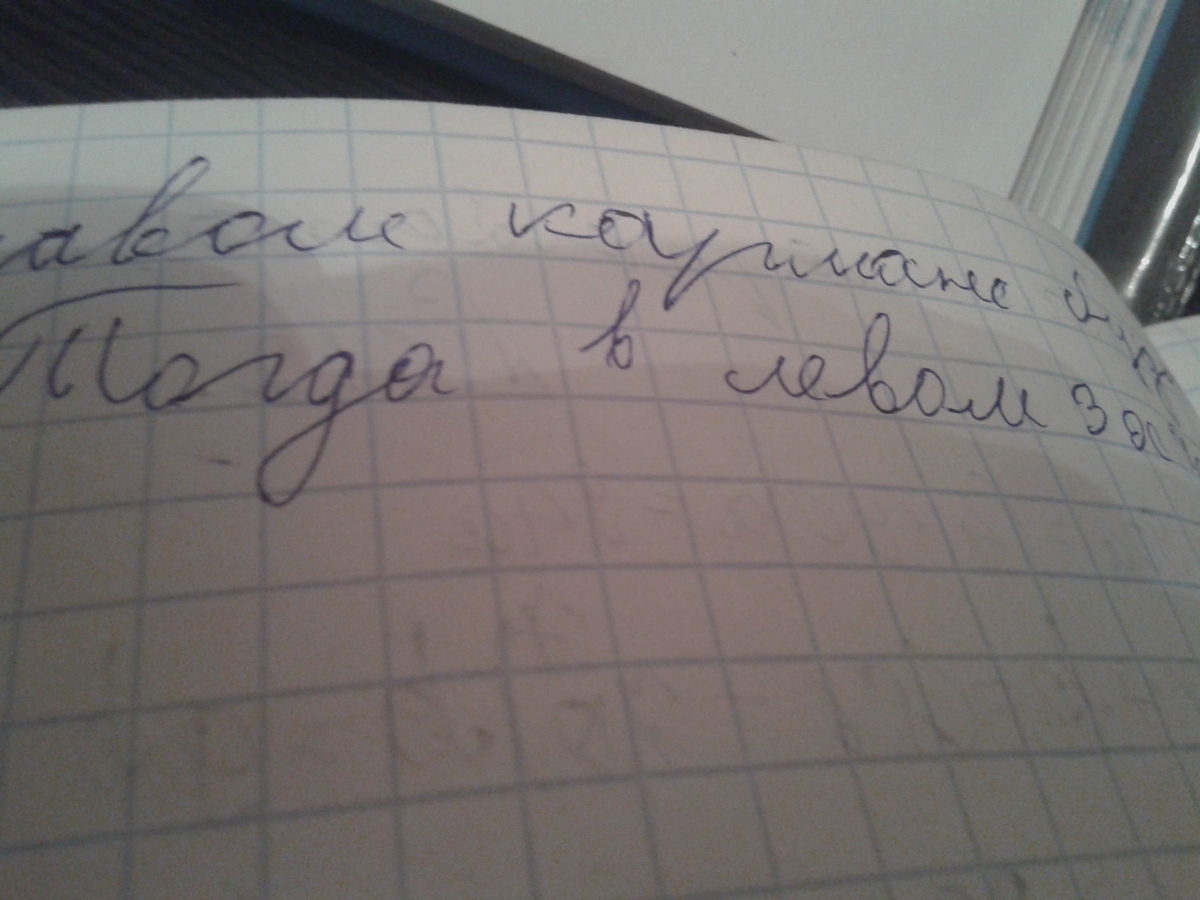 авом кармане
Тогда в левом за